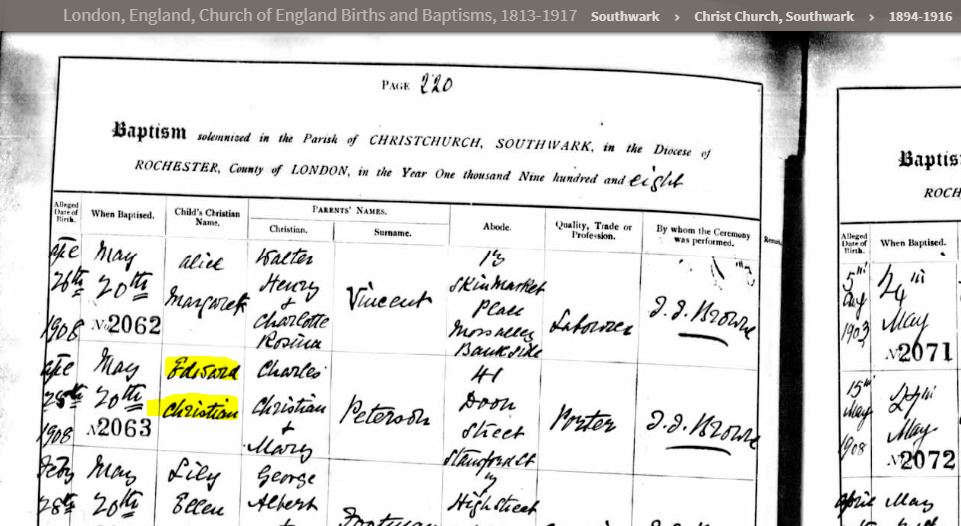 London, England, Church of England Births and Baptisms, 1813-1917 Southwark > Christ Church, Southwark > 1894-1916
PAGE 220
Baptism solemnized in the Parish of CHRISTCHURCH, SOUTHWARK, in the Diocese of
ROCHESTER, County of LONDON, in the Year One thousand Nine hundred and eight
Alleged Date of Birth. When Baptised. Child's Christian Name. PARENTS' NAMES. Christian. Surname. Abode. Quality, Trade or Profession. By whom the Ceremony was performed.
Ape May Alice Walter 13
26th 20th Margaret Henry Vincent Skinmarket J.J. Browne
1908 No. 2062 & Charlotte Place Labourer
Rosina Moss alley
Bankside
Ape May Edward Charles 41
28th 20th Christian Christian Peterson Doon Porter J.J. Browne
1908 No. 2063 & Street
Mary Stamford St
Feby May Lily George
28th 20th Ellen Albert High Street
Baptis
ROCH
Alleged Date of Birth. When Baptised.
5th
Aug
1903 May
No. 2071
15th
May May
1908 No. 2072
April May